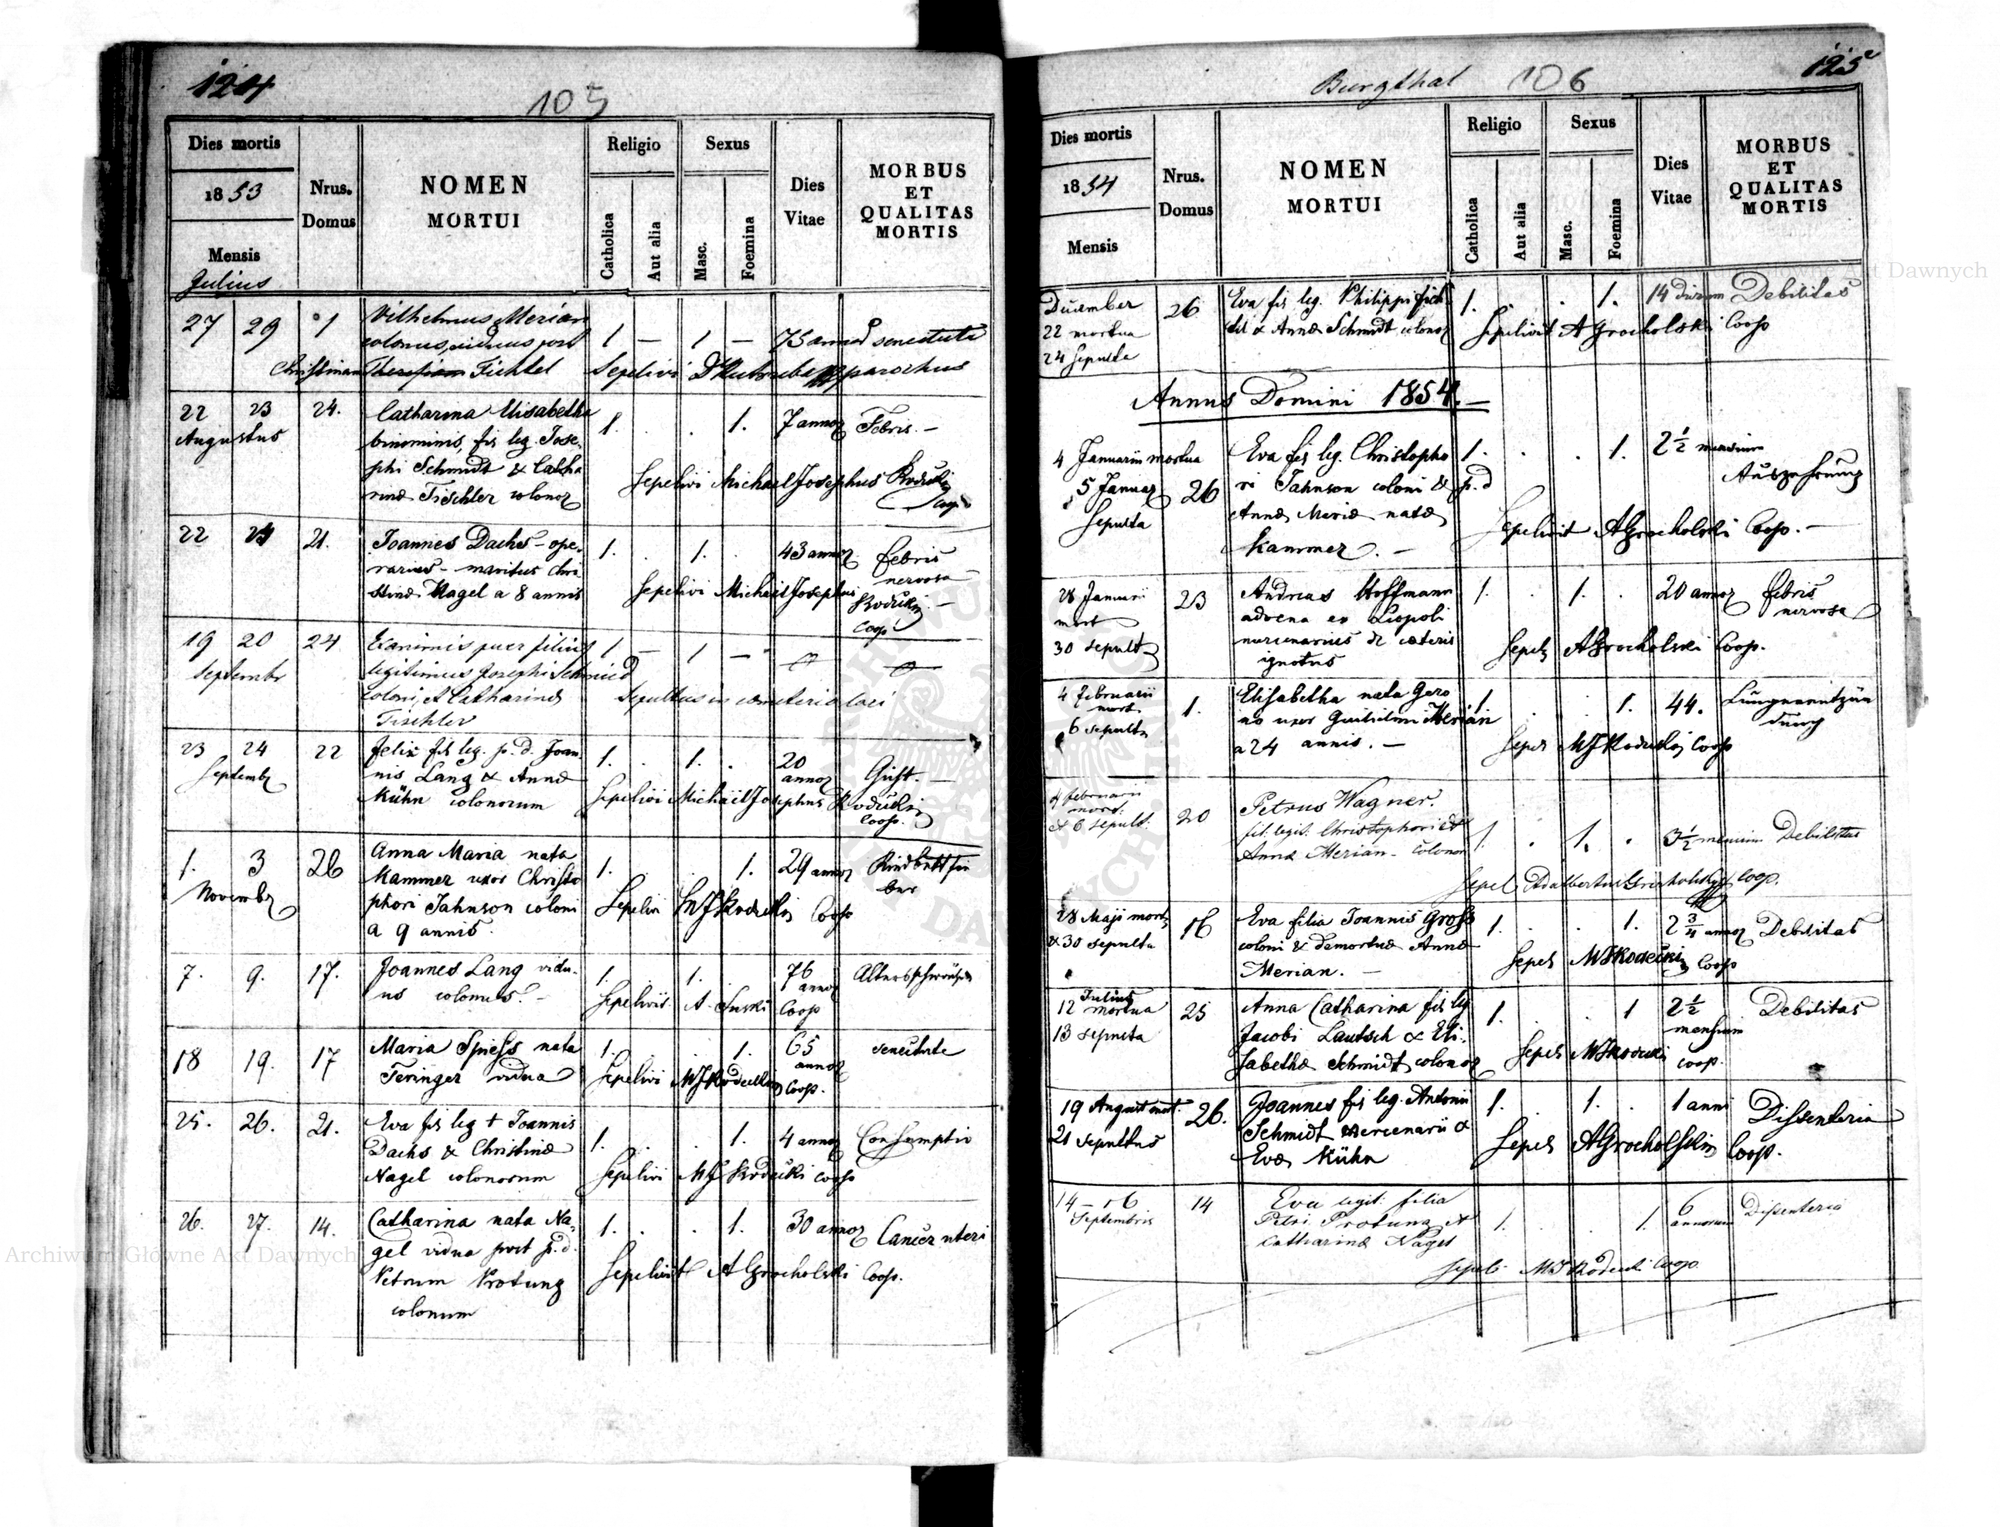 124
105
Dies mortis
1853
Mensis
Julius
Nrus.
Domus
NOMEN
MORTUI
Religio
Catholica
Aut alia
Sexus
Masc.
Foemina
Dies
Vitae
MORBUS
ET
QUALITAS
MORTIS
27 29 1 Vilhelmus Merian 1 — 1 — 75 senectute
colonus, viduus post
Christinam Fichtel Sepelivi parochus
22 23 24. Catharina Elisabetha 1. . . 1. 7 annor Febris.—
Augustus binominis, fis leg. Jose-
phi Schmidt & Catha Sepelivi Michael Josephus Koducki
rinae Tischler colonor Coop
22 24 21. Joannes Dachs - ope- 1. . 1. . 43 annor febris
rarius - maritus Chri nervosa
stinae Nagel a 8 annis Sepelivi Michael Josephus Koducki
Coop
19 20 24 Exanimis puer filius 1 — 1 —
Septembr legitimus Josephi Schmied
Coloni, et Catharinae Sepultus in cemeterio loci
Tischler
23 24 22 Felix fis leg. p. d. Joan- 1. . 1. . 20 annor Gicht.—
Septembr nis Lang & Annae
Kühn colonorum Sepelivi Michael Josephus Koducki Coop.
1. 3 26 Anna Maria nata 1. . . 1. 29 annor Kindbettfie
Novembr Kammer uxor Christo ber
phori Jahnson coloni Sepelivi MJKoducki Coop
a 9 annis.
7. 9. 17. Joannes Lang vidu- 1. . 1. . 76 annor Altersschwäche
us colonus.— Sepelivit A. Suski Coop
18 19. 17 Maria Spiess nata 1. . . 1. 65 annor senectute
Teringer vidua Sepelivi MJKoducki Coop.
25. 26. 21. Eva fis leg + Joannis 1. . . 1. 4 annor Consumptio
Dachs & Christinae
Nagel colonorum Sepelivi MJKoducki coop
26. 27. 14. Catharina nata Na- 1. . . 1. 30 annor Cancer uteri
gel vidua post p. d.
Petrum Protung Sepelivit AGrocholski Coop.
colonum
125
Burgthal 106
Dies mortis
1854
Mensis
Nrus.
Domus
NOMEN
MORTUI
Religio
Catholica
Aut alia
Sexus
Masc.
Foemina
Dies
Vitae
MORBUS
ET
QUALITAS
MORTIS
December 26 Eva fis leg. Philippi Fich- 1. . . 1. 14 dierum Debilitas
22 mortua tel & Annae Schmidt colonor Sepelivit AGrocholski Coop
24 sepulta
Annus Domini 1854.—
4 Januarii mortua Eva fis leg. Christopho 1. . . 1. 2 1/2 mensium Auszehrung
5 Januar 26 ri Jahnson coloni & p. d
sepulta Annae Mariae natae Sepelivit AGrocholski Coop.—
Kammer.—
28 Januari 23 Andreas Hoffmann 1. . 1. . 20 annor febris
mort advena ex Leopoli nervosa
30 sepult mercenarius de caeteris Sepel AGrocholski Coop.
ignotus
4 februarii 1. Elisabetha nata Gero 1 . . 1. 44. Lungenentzün
mort. no uxor Guilielmi Merian dung
6 sepulta a 24 annis.— Sepel MJKoducki Coop
4 februarii 20 Petrus Wagner. 1. . 1. . 3 1/2 mensium Debilitas
mort. fil. legit. Christophori et
et 6 sepult. Annae Merian. colonor
Sepel Adalbertus Grocholski Coop.
28 Maji mort 16 Eva filia Joannis Gross 1. . . 1. 2 3/4 annor Debilitas
& 30 sepulta coloni & demortuae Annae
Merian.— Sepel MJKoducki Coop
12 Julius mortua 25 Anna Catharina fis leg 1. . . 1 2 1/2 mensium Debilitas
13 sepulta Jacobi Lautsch & Eli-
sabethae Schmidt colonor Sepel MJKoducki coop.
19 August mort. 26. Joannes fis leg. Antonii 1. . 1. . 1 anni Dissenteria
21 sepultus Schmidt mercenarii & Sepel AGrocholski Coop.
Evae Kühn
14 – 16 14 Eva legit: filia 1. . . 1. 6 annorum Dissenteria
Septembris Petri Protung et
Catharinae Nagel
Sepel: MJKoducki Coop
Archiwum Główne Akt Dawnych